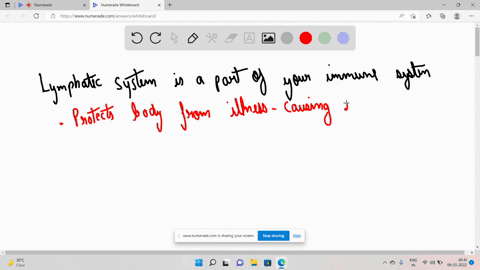 Numerade
Numerade Whiteboard
https://www.numerade.com/answers/whiteboard/
Lymphatic system is a part of your immune systm
. Protects body from illness - causing
www.numerade.com is sharing your screen. Stop sharing Hide
30°C
Clear
ENG
IN
00:41